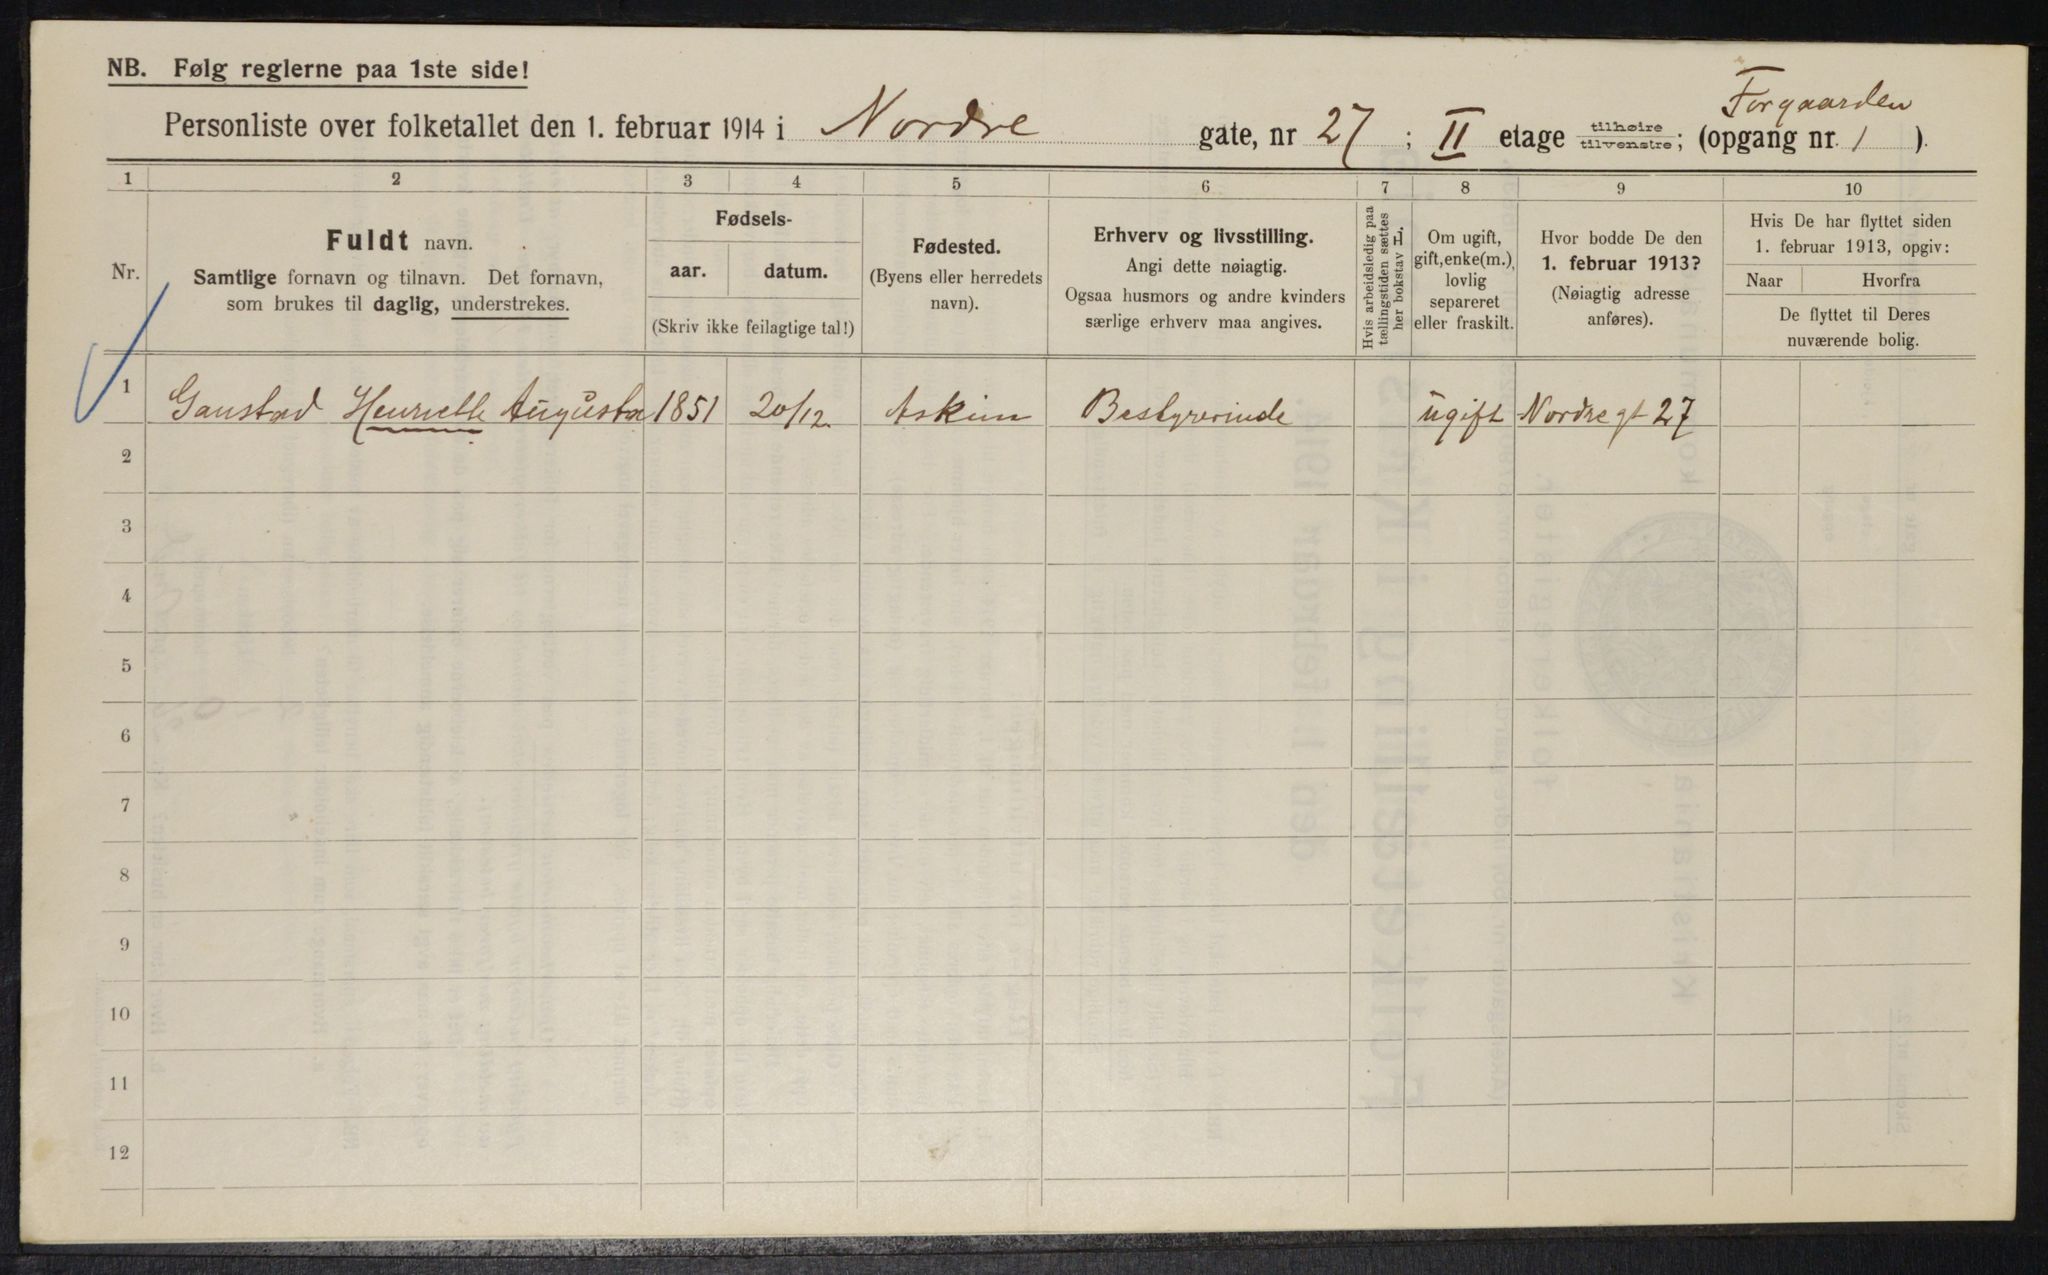 NB. Følg reglerne paa 1ste side!
Forgaarden
Personliste over folketallet den 1. februar 1914 i Nordre gate, nr 27; II etage tilhøire/tilvenstre; (opgang nr. 1).
1 2 3 4 5 6 7 8 9 10
Nr.
Fuldt navn.
Samtlige fornavn og tilnavn. Det fornavn,
som brukes til daglig, understrekes.
Fødsels-
aar. datum.
(Skriv ikke feilagtige tal!)
Fødested.
(Byens eller herredets
navn).
Erhverv og livsstilling.
Angi dette nøiagtig.
Ogsaa husmors og andre kvinders
særlige erhverv maa angives.
Hvis arbeidsledig paa
tællingstiden sættes
her bokstav L.
Om ugift,
gift, enke(m.),
lovlig
separeret
eller fraskilt.
Hvor bodde De den
1. februar 1913?
(Nøiagtig adresse
anføres).
Hvis De har flyttet siden
1. februar 1913, opgiv:
Naar Hvorfra
De flyttet til Deres
nuværende bolig.
1 Gaustad Henriette Augusta 1851 20/12. Askim Bestyrerinde ugift Nordregt 27
2
3
4
5
6
7
8
9
10
11
12